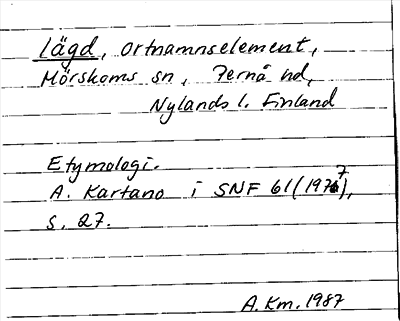 lägd, ortnamnselement,
Mörskoms sn, Pernå hd,
Nylands l. Finland
Etymologi.
A. Kartano i SNF 61(1977),
s. 27.
A.Km. 1987